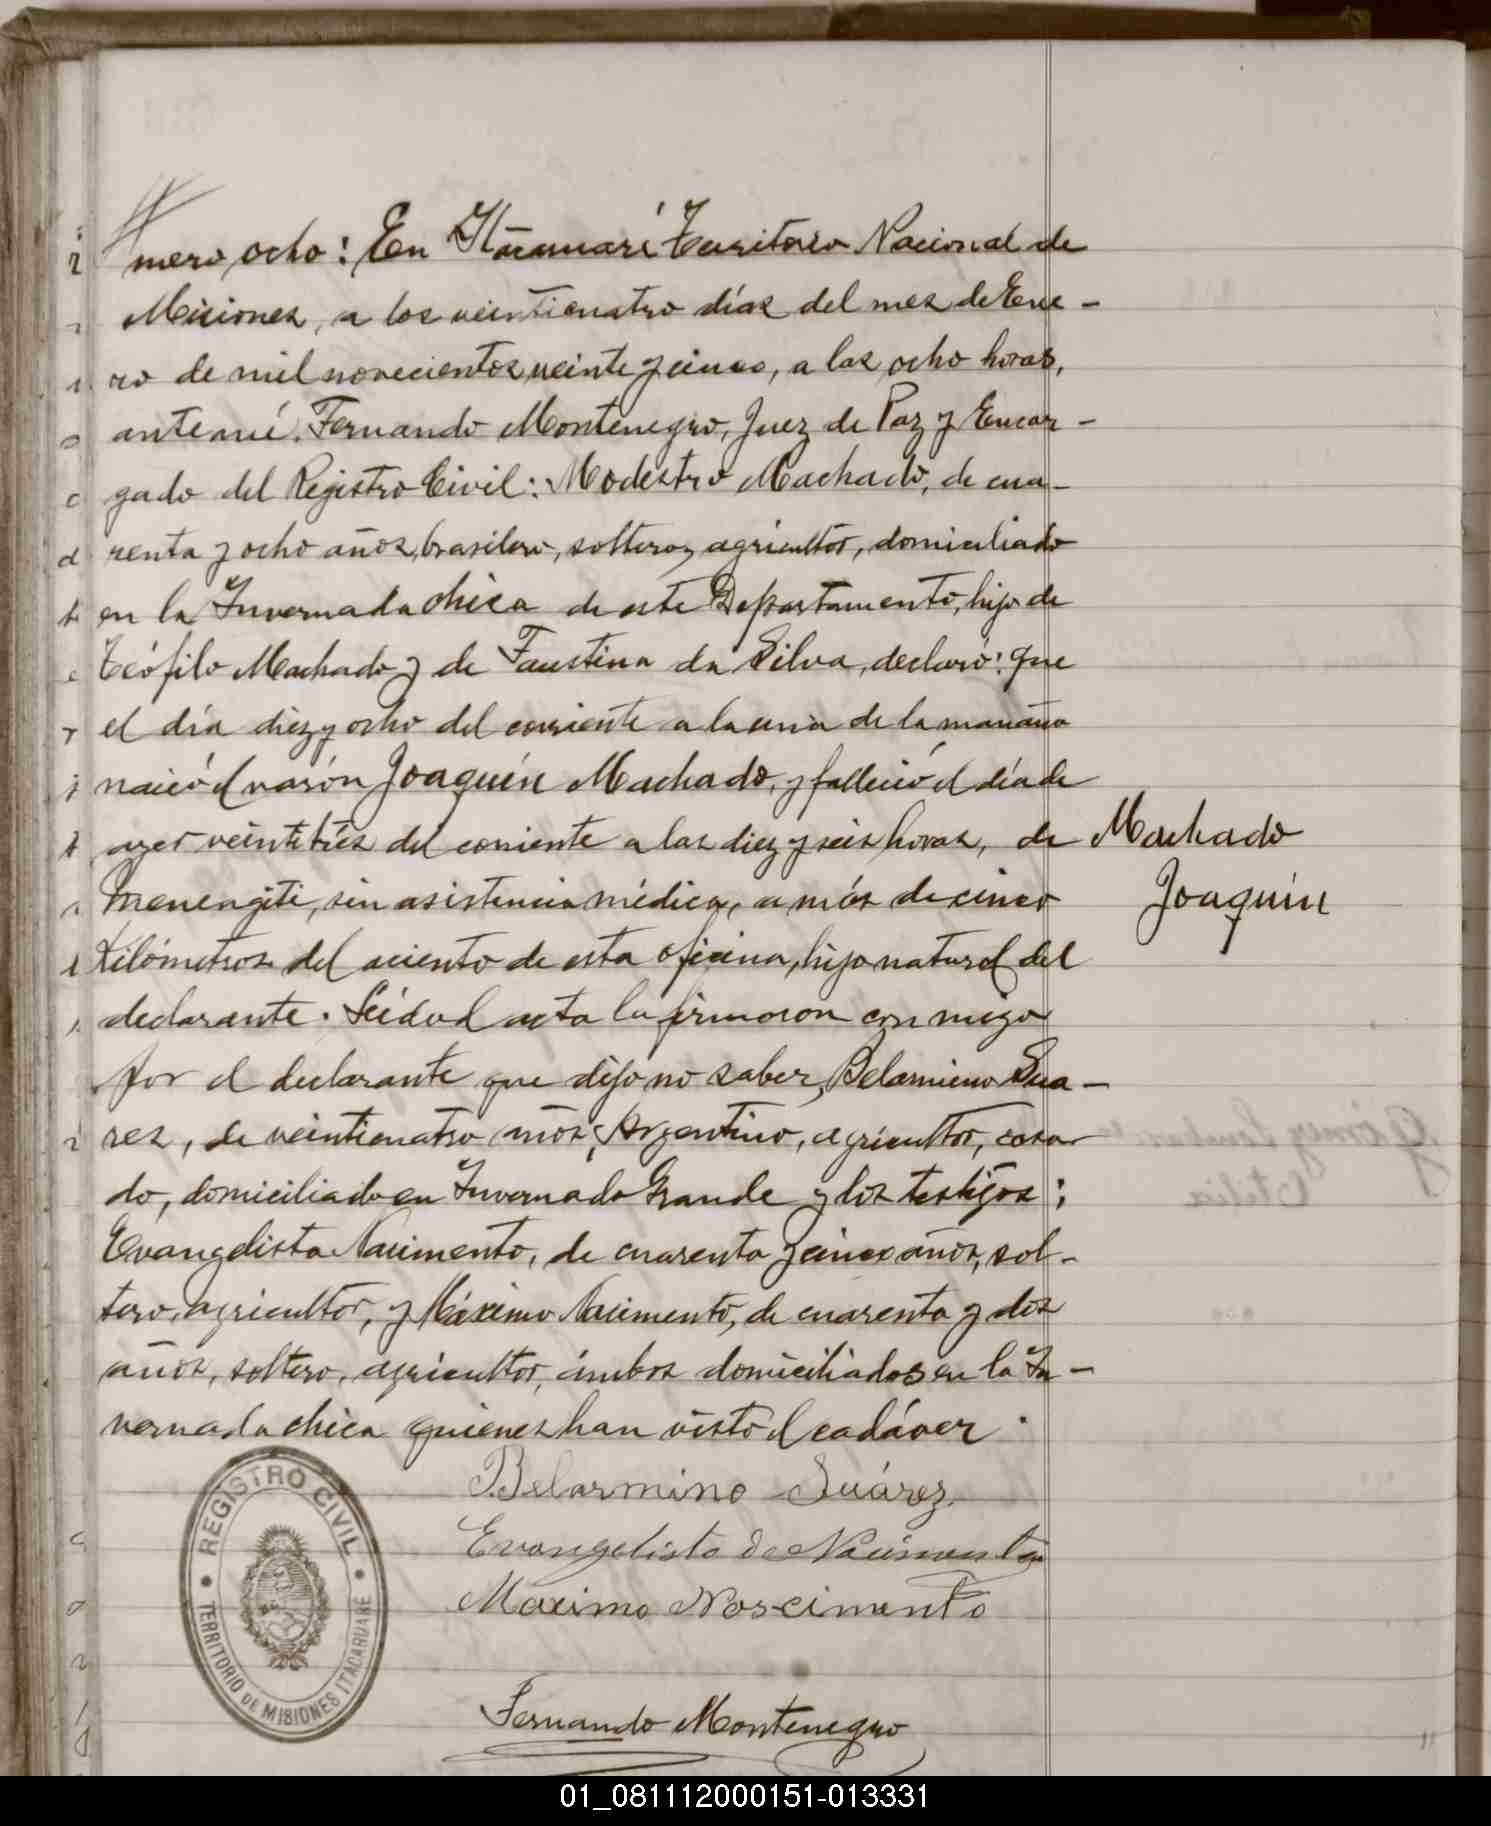 mero ocho: En Itacuararé Territorio Nacional de
Misiones, a los veinticuatro días del mes de Ene-
ro de mil novecientos veinte y cinco, a las ocho horas,
ante mí, Fernando Montenegro, Juez de Paz y Encar-
gado del Registro Civil: Modestro Machado, de cua-
renta y ocho años, brasilero, soltero, agricultor, domiciliado
en la Invernada chica de este Departamento, hijo de
Teófilo Machado y de Faustina da Silva, declaró: que
el día diez y ocho del corriente a la una de la mañana
nació el varón Joaquín Machado, y falleció el día de
ayer veintitrés del corriente a las diez y seis horas, de
menengite, sin asistencia médica, a más de cinco
Kilómetros del aciento de esta oficina, hijo natural del
declarante. Leída el acta la firmaron con migo
por el declarante que dijo no saber, Belarmino Sua-
res, de veinticuatro años, Argentino, agricultor, casa-
do, domiciliado en Invernada Grande y los testigos:
Evangelista Nacimento, de cuarenta y cinco años, sol-
tero, agricultor, y Máximo Nacimento, de cuarenta y dos
años, soltero, agricultor, ámbos domiciliados en la In-
vernada chica quienes han visto el cadáver.
Machado
Joaquín
Belarmino Suárez
Evangelista de Nacimento
Maximo Noscimento
Fernando Montenegro
REGISTRO CIVIL
TERRITORIO DE MISIONES ITACARUARE
01_081112000151-013331